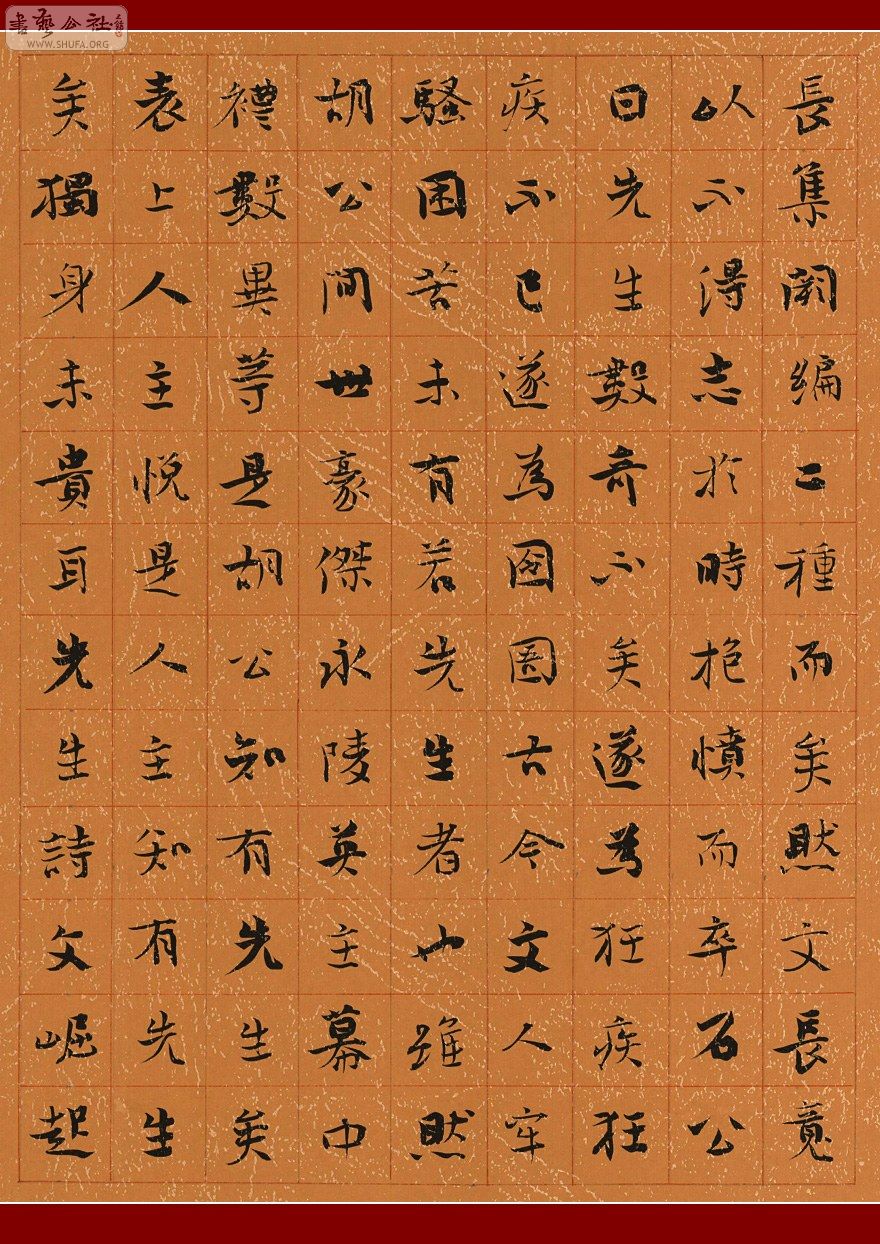 書藝公社
WWW.SHUFA.ORG
長集闕編二種而矣然文長竟
以不得志於時抱憤而卒石公
曰先生數奇不矣遂為狂疾狂
疾不已遂為囹圄古今文人牢
騷困苦未有若先生者也雖然
胡公間世豪傑永陵英主幕中
禮數異等是胡公知有先生矣
表上人主悅是人主知有先生
矣獨身未貴耳先生詩文崛起